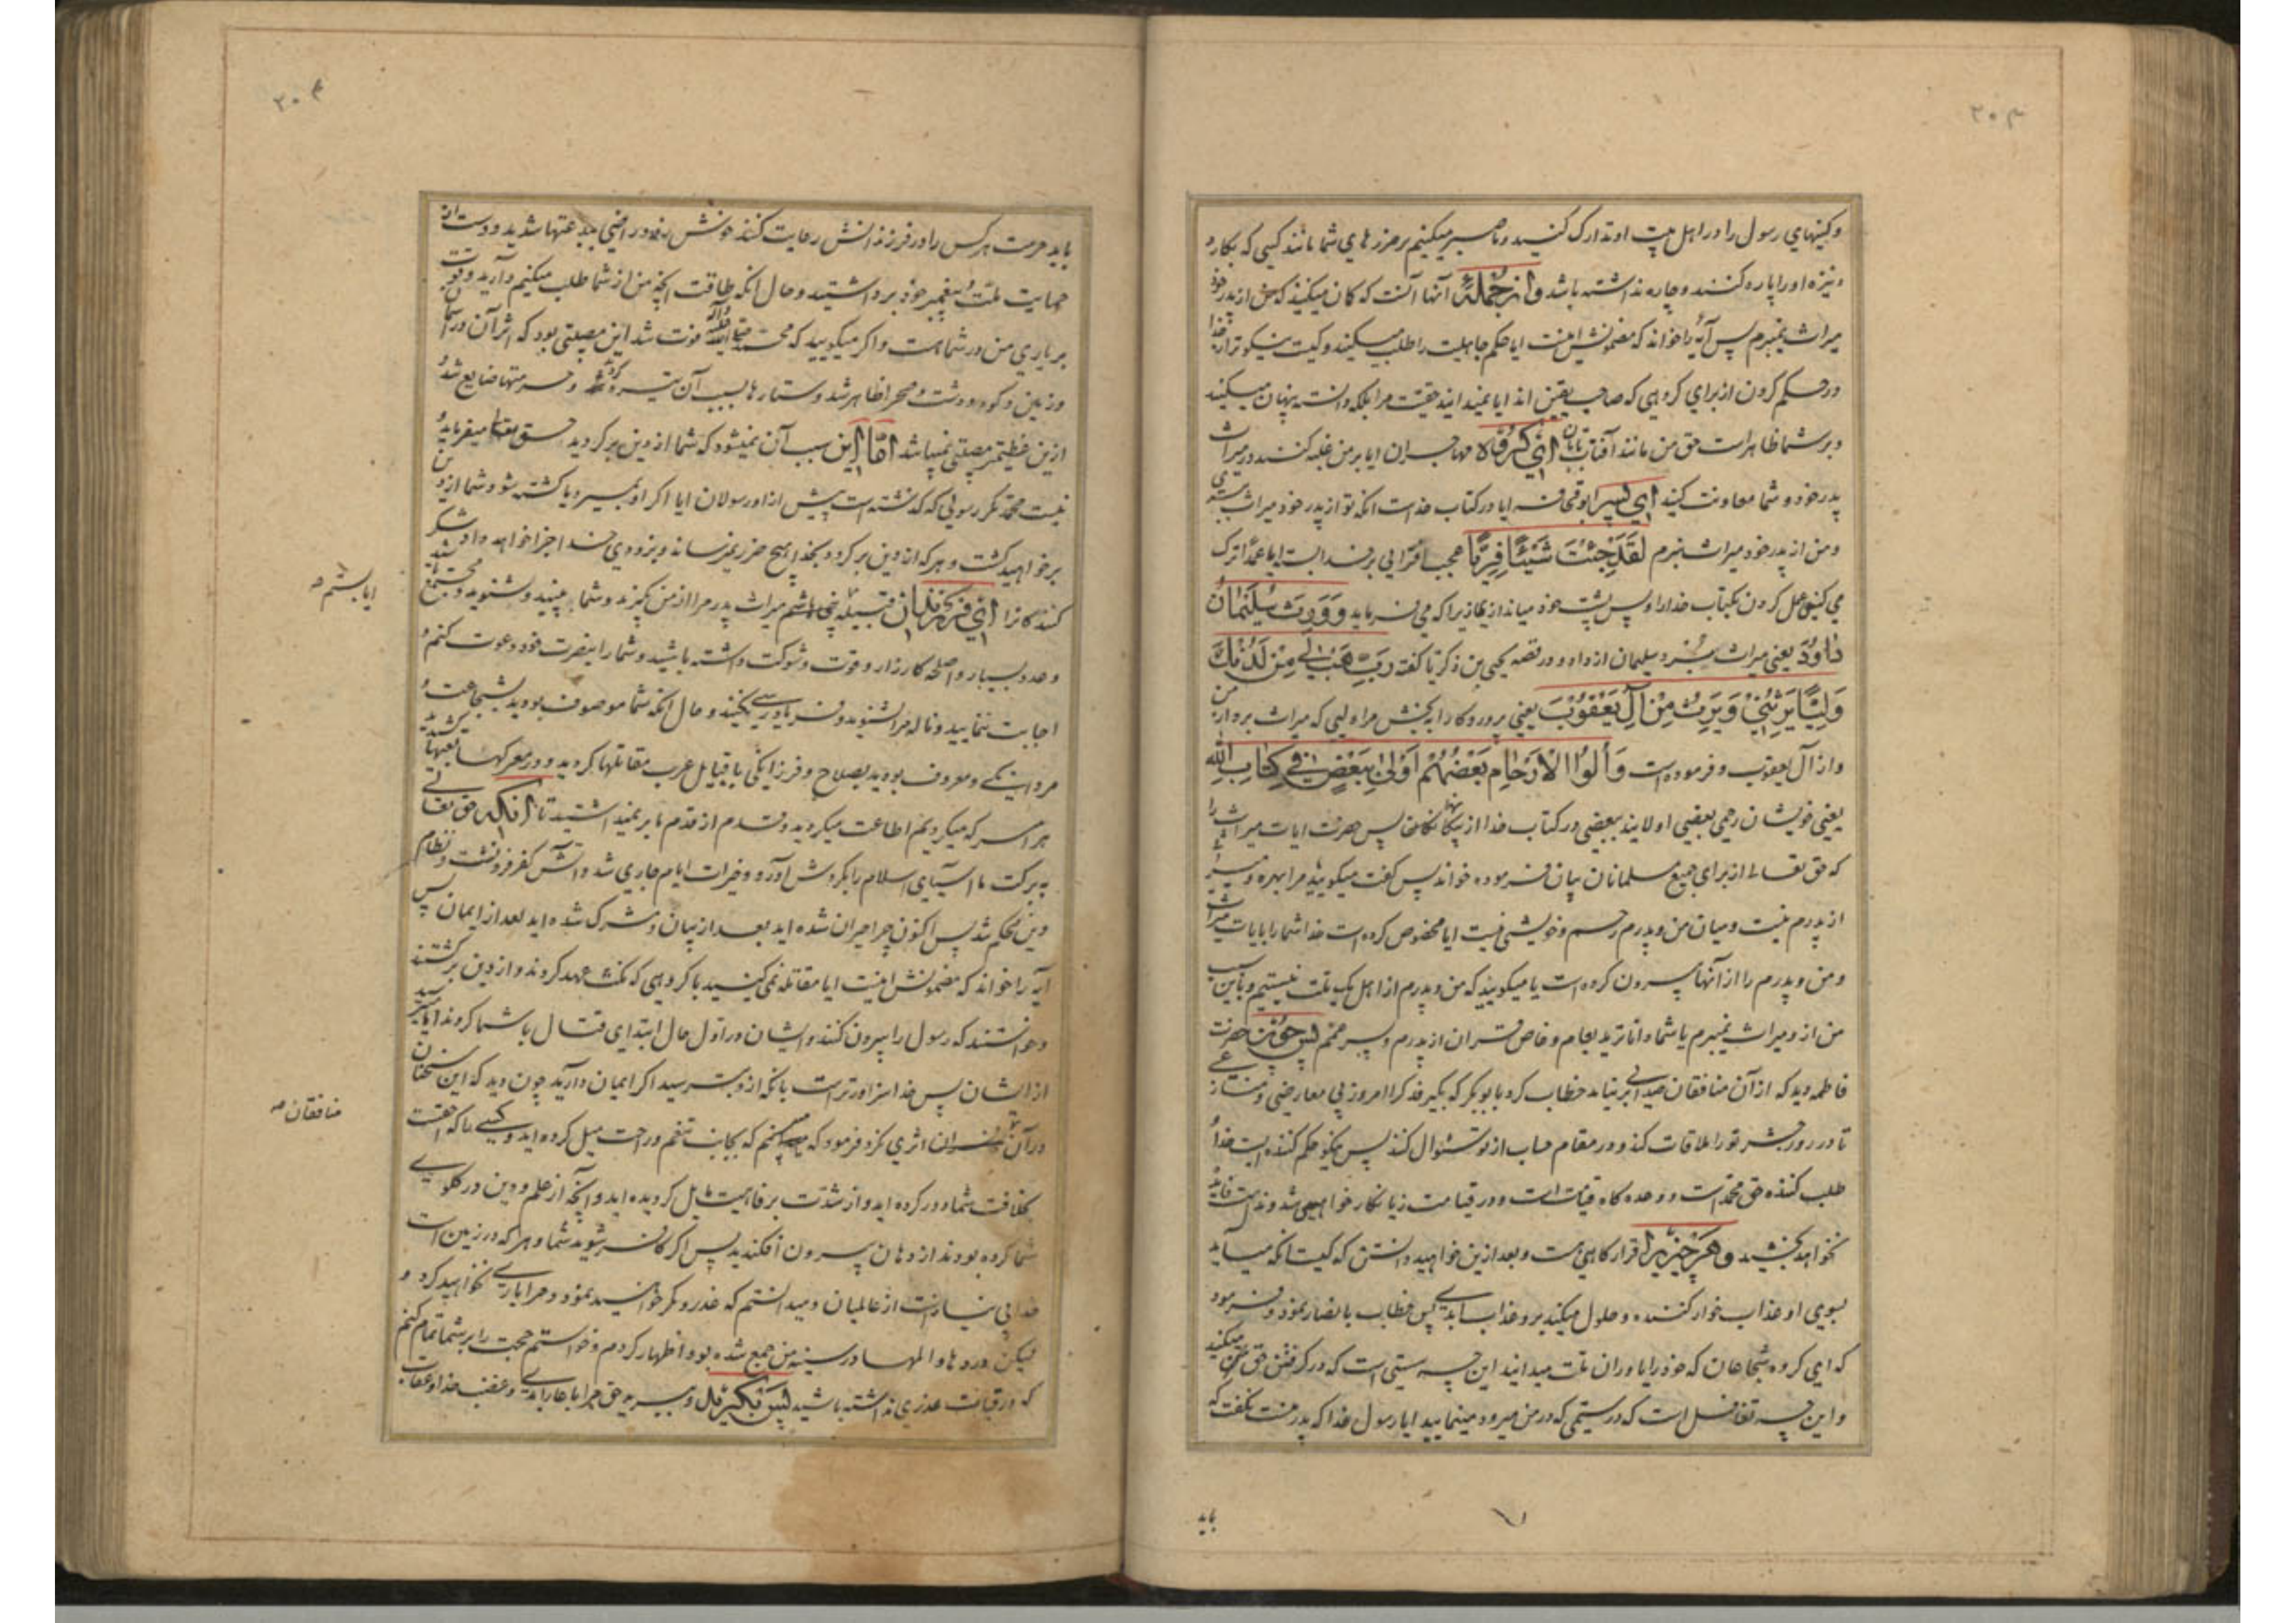 ۲۰۳
و کینهای رسول را در اهل بیت او تدارک کنید و ما صبر میکنیم بر ضررهای شما مانند کسی که بکارد
و نیزه او را پاره کنند و چاره نداشته باشد و از جمله آنها آنست که کان میکنید که من از پدر خود
میراث نمیبرم پس آیه را خواند که مضمونش اینست ایا حکم جاهلیت را طلب میکنید و کیست نیکوتر از خدا
در حکم کردن از برای کروهی که صاحب یقین اند ایا نمیدانید حقیت مرا بلکه دانسته پنهان میکنید
و بر شما ظاهر است حق من مانند آفتاب تابان ای کروه مهاجران ایا بر من غلبه کنند در میراث
پدر خود و شما معاونت کنید ای پسر ابو قحافه ایا در کتاب خداست انکه تو از پدر خود میراث ببری
و من از پدر خود میراث نبرم لَقَدْ جِئْتَ شَیْئًا فَرِیًّا عجب افترایی بر خدا بسته ایا عمداً ترک
می کنی عمل کردن بکتاب خدا را و پس پشت خود میاندازید زیرا که می فرماید وَ وَرِثَ سُلَیْمَانُ
دَاوُدَ یعنی میراث برد سلیمان از داود و در قصه یحیی بن زکریا گفته رَبِّ هَبْ لِی مِنْ لَدُنْکَ
وَلِیًّا یَرِثُنِی وَ یَرِثُ مِنْ آلِ یَعْقُوبَ یعنی پروردکارا ببخش مرا ولیی که میراث بردارد من
و از آل یعقوب و فرموده است وَ أُولُوا الْأَرْحَامِ بَعْضُهُمْ أَوْلَی بِبَعْضٍ فِی کِتَابِ اللَّهِ
یعنی خویشان رحمی بعضی اولایند ببعضی در کتاب خدا از پس حضرت ایات میراث را
که حق تعالی از برای جمیع مسلمانان بیان فرموده خواند پس گفت میکویید مرا بهره و میراثی
از پدرم نیست و میان من و پدرم رحم و خویشی نیست ایا مخصوص کرده است خدا شما را بایات میراث
و من و پدرم را از آنها بیرون کرده است یا میکویید که من و پدرم از اهل یک ملت نیستیم و باین سبب
من از او میراث نمیبرم یا شما داناترید بعام و خاص قران از پدرم و پسر عمم پس چون حضرت
فاطمه دید که از آن منافقان صدائی بر نیامد خطاب کرد بابوبکر که بگیر فدک را امروز بی معارضی و منازعی
تا در روز حشر تو را ملاقات کند و در مقام حساب از تو سئوال کند پس نیکو حکم کننده ایست خدا و
طلب کننده حق محمد است و وعده کاه قیامت است و در قیامت زیانکار خواهی شد و ندامت فایده
نخواهد بخشید و هر چیز را قرارکاهی هست و بعد ازین خواهید دانستن که کیست انکه میآید
بسوی او عذاب خوار کننده و حلول میکند بر او عذاب ابدی پس خطاب بانصار نمود و فرمود
که ای کروه شجاعان که خود را یاوران ملت میدانید این چه سستی است که در گرفتن حق من میکنید
و این چه تغافل است که در ستمی که در من میرود مینمایید ایا رسول خدا که پدر منست نگفت که
باید
۲۰۴
باید حرمت هر کس را در فرزندانش رعایت کنند چه بدعتها شدید و دست از
حمایت ملت پیغمبر خود برداشتید و حال انکه طاقت انچه من از شما طلب میکنم دارید و قوت
بر یاری من در شما هست و اکر میکویید که محمد فوت شد این مصیبتی بود که اثر آن در اسمان
و زمین و کوه و دشت و صحرا ظاهر شد و ستارها بسبب آن تیره و حرمتها ضایع شد و
ازین عظیمتر مصیبتی نمیباشد امّا این سبب آن نمیشود که شما از دین بر کردید حق تعالی میفرماید
نیست محمد مگر رسولی که گذشته است پیش از او رسولان ایا اکر او بمیرد یا کشته شود شما از دین
بر خواهید کشت و هر که از دین بر کردد بخدا هیچ ضرر نمیرساند و بزودی خدا جزا خواهد داد شکر
کنندکانرا ای فرزندان قیله میراث پدر مرا از من بگیرند و شما ببینید و بشنوید و مجتمع باشید
ایا بستم
و عدد بسیار و اسلحه کارزار و قوت و شوکت داشته باشید و شما را بنصرت خود دعوت کنم و
اجابت ننمایید و ناله مرا شنوید و فریادرسی نکنید و حال انکه شما موصوف بودید بشجاعت و
مردانگی و معروف بودید بصلاح و فرزانگی با قبایل عرب مقاتلها کردید و در معرکها تعبها کشیدید
هر امر که میکردیم اطاعت میکردید و قدم از قدم ما بر نمیداشتید تا آنکه حق تعالی
به برکت ما آسیای اسلام را بگردش آورد و خیرات ایام جاری شد و آتش کفر فرو نشست و نظام
دین محکم شد پس اکنون چرا حیران شده اید بعد از بیان و مشرک شده اید بعد از ایمان پس
آیه را خواند که مضمونش اینست ایا مقاتله نمی کنید با کروهی که نکث عهد کردند و از دین بر کشتند
و خواستند که رسول را بیرون کنند و ایشان در اول حال ابتدای قتال با شما کردند ایا میترسید
از ایشان پس خدا سزاوارتر است بانکه از او بترسید اکر ایمان دارید چون دید که این سخنان
منافقان
در آن اثری نکرد فرمود که که بجانب تنعم و راحت میل کرده اید و کسی را که احق است
بخلافت شما دور کرده اید و از شدت برفاهیت مایل کردیده اید و آنچه از علم و دین در گلوی
شما کرده بودند از دهان بیرون افکندید پس اکر کافر شوید شما و هر که در زمین است
خدا بی نیاز است از عالمیان و میدانستم که غدر و مکر خواهید نمود و مرا یاری نخواهید کرد و
لیکن دردها و المها در سینه من جمع شده بود اظهار کردم و خواستم حجت را بر شما تمام کنم
که در قیامت عذری نداشته باشید پس بگیر و ببر به حق مرا با عار ابدی و غضب خدا و عقاب